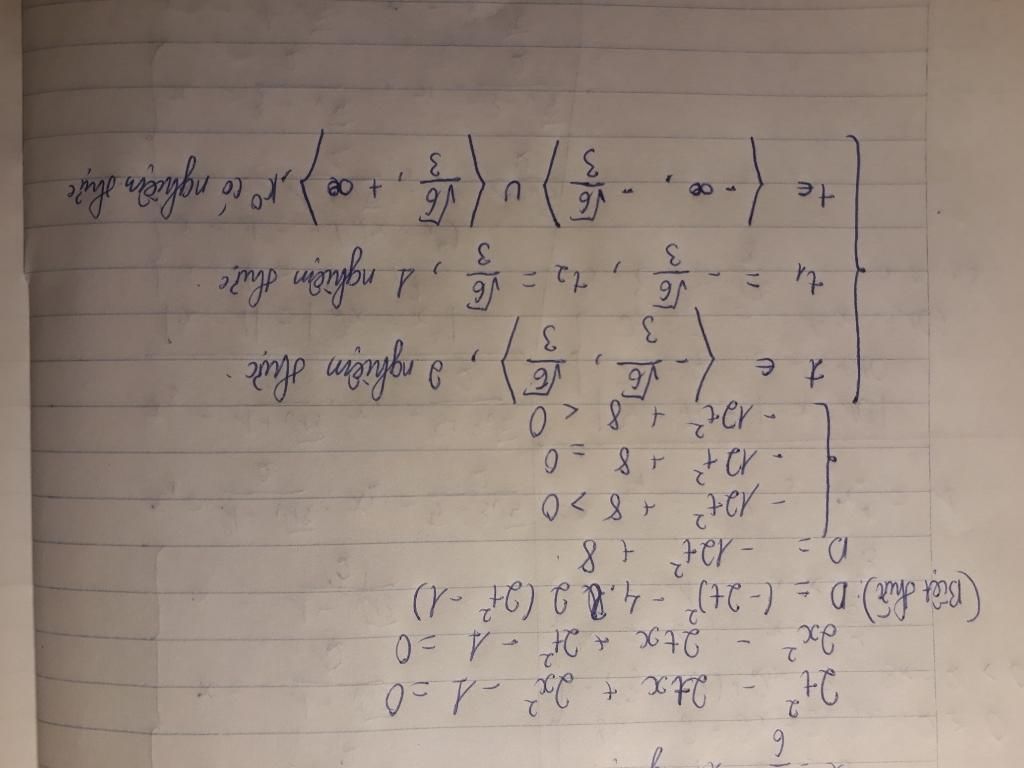 6
2t² - 2tx + 2x² - 1 = 0
2x² - 2tx + 2t² - 1 = 0
(Biệt thức). D = (-2t)² - 4. 2 (2t² - 1)
D = -12t² + 8.
-12t² + 8 > 0
-12t² + 8 = 0
-12t² + 8 < 0
t ∈ ⟨-√6/3, √6/3⟩, 2 nghiệm thực.
t₁ = -√6/3, t₂ = √6/3, 1 nghiệm thực.
t ∈ ⟨-∞, -√6/3⟩ ∪ ⟨√6/3, +∞⟩, k⁰ có nghiệm thực